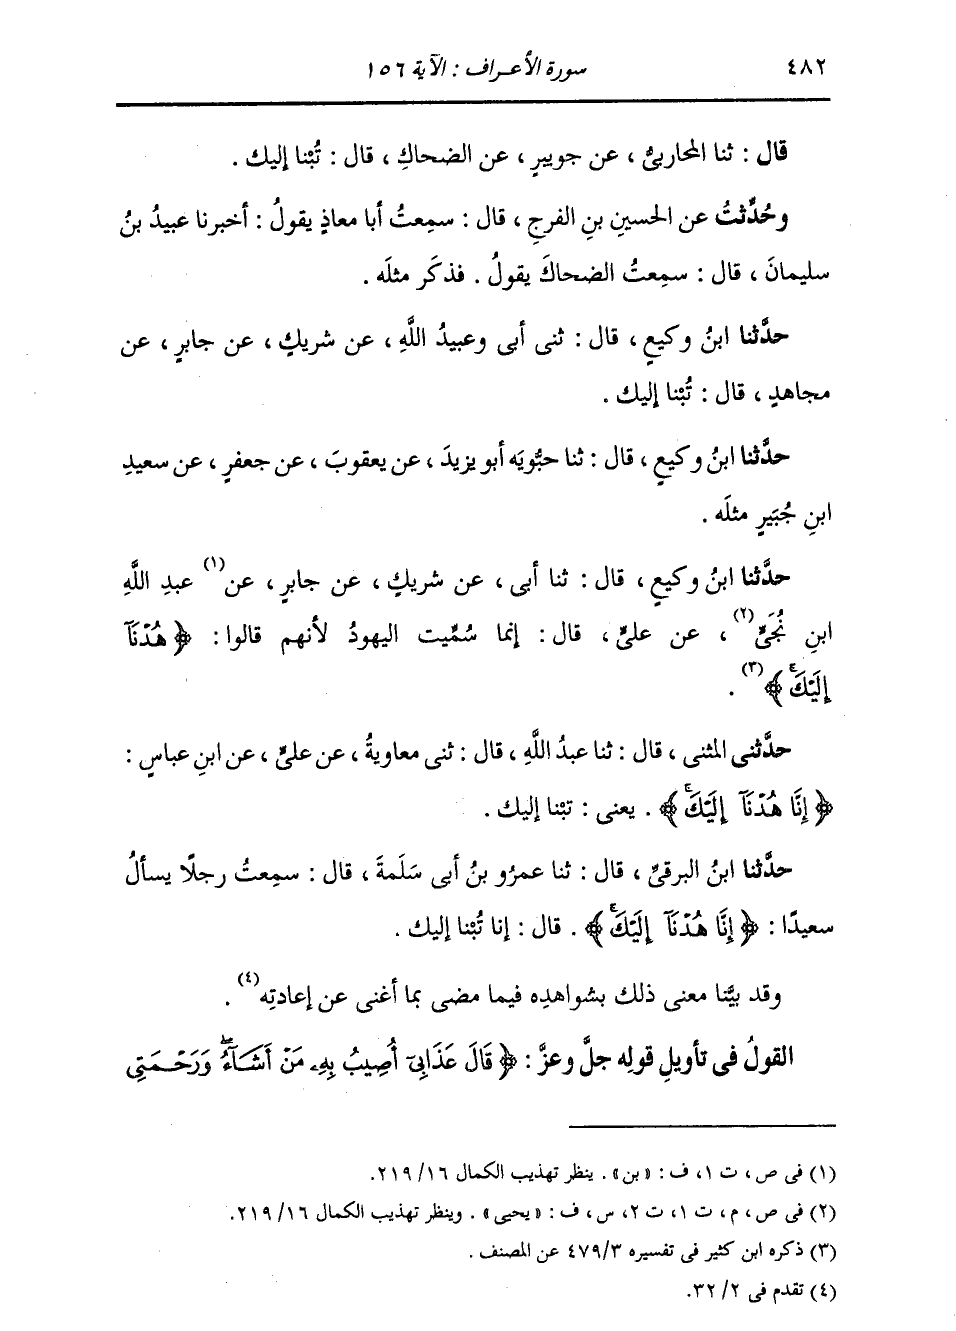 ٤٨٢ سورة الأعراف : الآية ١٥٦
قال : ثنا المحاربىُّ ، عن جويبرٍ ، عن الضحاكِ ، قال : تُبْنا إليك .
وحُدِّثتُ عن الحسينِ بنِ الفرجِ ، قال : سمِعتُ أبا معاذٍ يقولُ : أخبرنا عبيدُ بنُ
سليمانَ ، قال : سمِعتُ الضحاكَ يقولُ . فذكَر مثلَه .
حدَّثنا ابنُ وكيعٍ ، قال : ثنى أبى وعبيدُ اللَّهِ ، عن شريكٍ ، عن جابرٍ ، عن
مجاهدٍ ، قال : تُبْنا إليك .
حدَّثنا ابنُ وكيعٍ ، قال : ثنا حبُّويَه أبو يزيدَ ، عن يعقوبَ ، عن جعفرٍ ، عن سعيدِ
ابنِ جُبَيرٍ مثلَه .
حدَّثنا ابنُ وكيعٍ ، قال : ثنا أبى ، عن شريكٍ ، عن جابرٍ ، عن(١) عبدِ اللَّهِ
ابنِ نُجَىٍّ(٢) ، عن علىٍّ ، قال : إنما سُمِّيت اليهودُ لأنهم قالوا : ﴿ هُدْنَآ
إِلَيْكَۚ ﴾(٣) .
حدَّثنى المثنى ، قال : ثنا عبدُ اللَّهِ ، قال : ثنى معاويةُ ، عن علىٍّ ، عن ابنِ عباسٍ :
﴿ إِنَّا هُدْنَآ إِلَيْكَۚ ﴾ . يعنى : تبْنا إليك .
حدَّثنا ابنُ البرقىِّ ، قال : ثنا عمرُو بنُ أبى سَلَمةَ ، قال : سمِعتُ رجلًا يسألُ
سعيدًا : ﴿ إِنَّا هُدْنَآ إِلَيْكَۚ ﴾ . قال : إنا تُبْنا إليك .
وقد بيَّنا معنى ذلك بشواهدِه فيما مضى بما أغنى عن إعادتِه(٤) .
القولُ فى تأويلِ قولِه جلَّ وعزَّ : ﴿ قَالَ عَذَابِىٓ أُصِيبُ بِهِۦ مَنْ أَشَآءُۖ وَرَحْمَتِى
(١) فى ص ، ت ١، ف : « بن » . ينظر تهذيب الكمال ١٦/ ٢١٩.
(٢) فى ص ، م ، ت ١، ت ٢، س ، ف : « يحيى » . وينظر تهذيب الكمال ١٦/ ٢١٩.
(٣) ذكره ابن كثير فى تفسيره ٤٧٩/٣ عن المصنف .
(٤) تقدم فى ٢/ ٣٢.